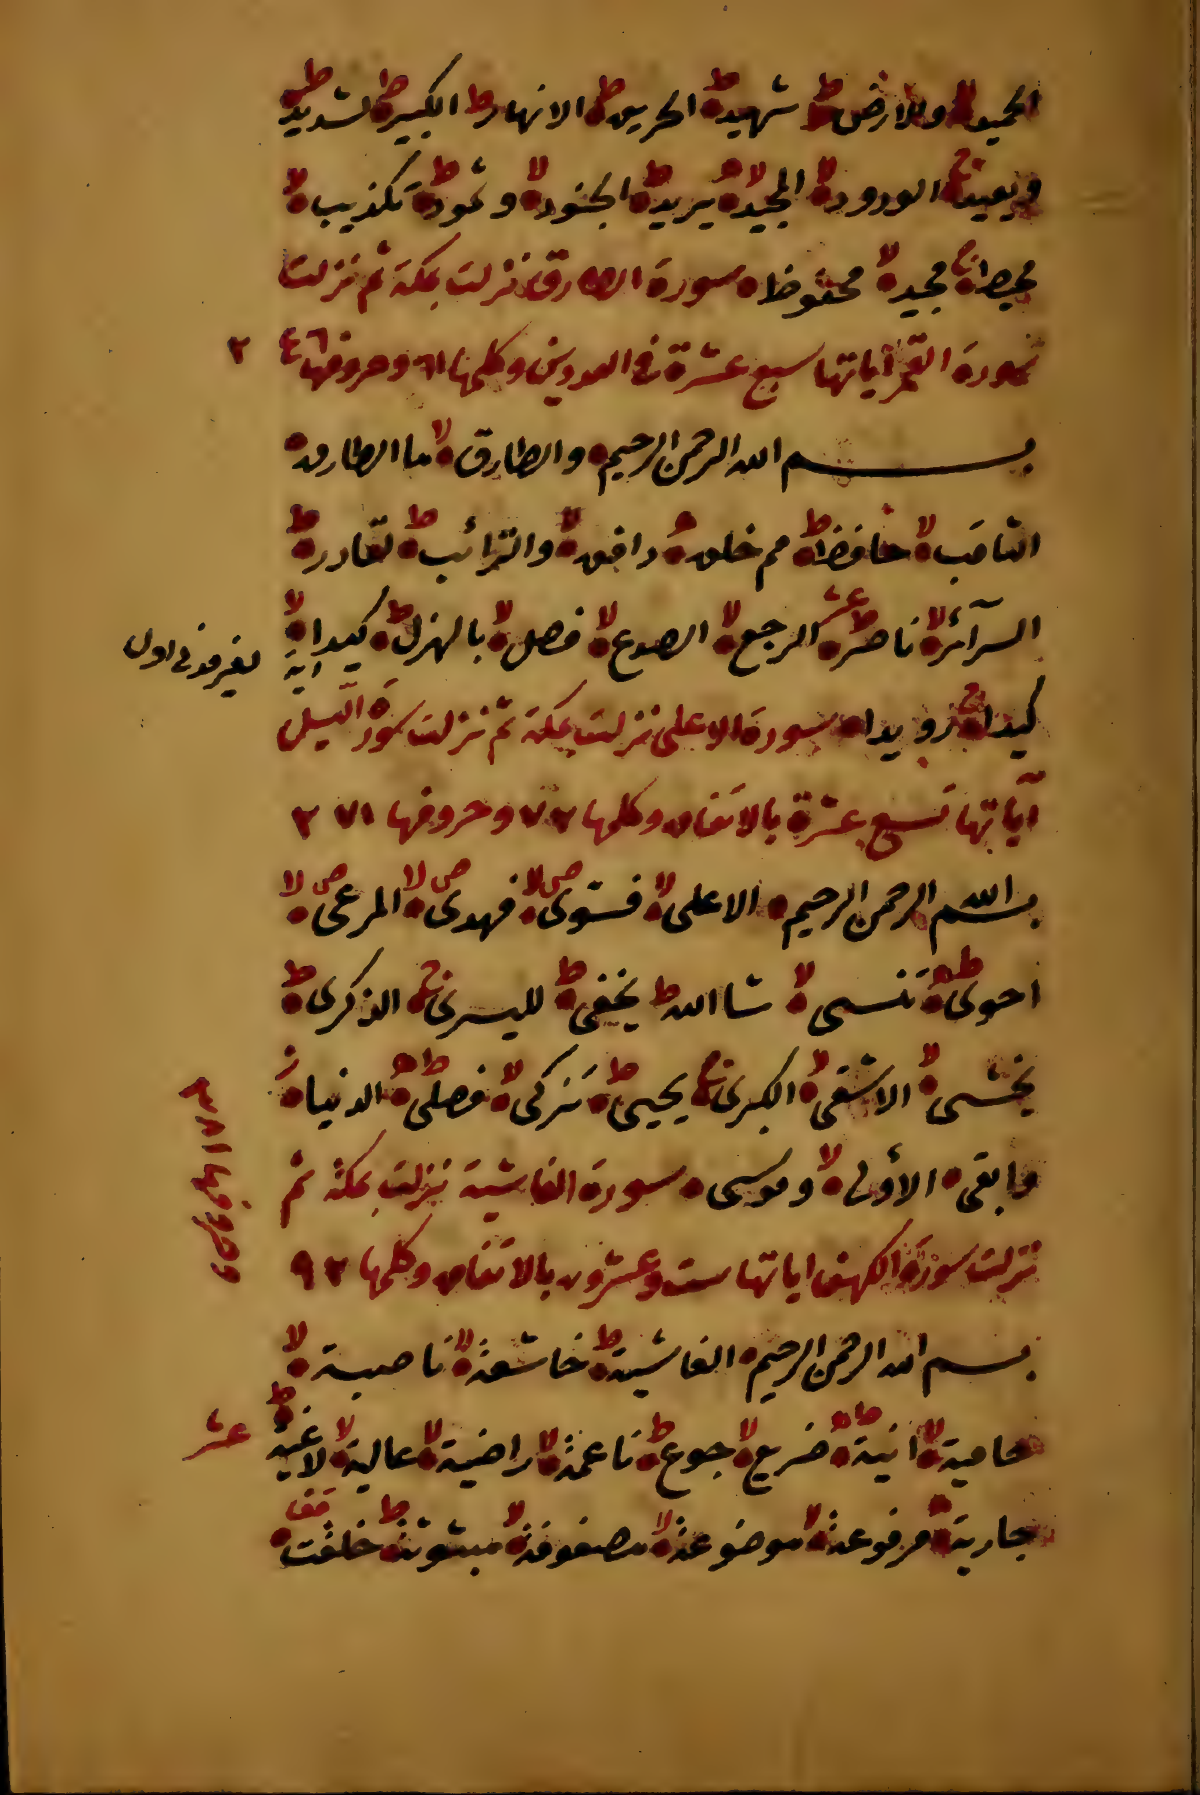 الحميد لا والارض ط شهيد ط الحريق ط الانهار ط الكبير ط لشديد ط
ويعيد ج الودود لا المجيد لا يريد ط الجنود لا وثمود ط تكذيب لا
محيط ج مجيد لا محفوظ سورة الطارق نزلت بمكة ثم نزلت
سورة القمر آياتها سبع عشرة في المدودين وكلمها ٦١ وحروفها ٢٤٦
بسم الله الرحمن الرحيم والطارق لا ما الطارق
الثاقب لا حافظ ط مم خلق دافق لا والترائب ط لقادر ط
السرآئر لا ناصر ط عشر الرجع لا الصدع لا فصل لا بالهزل ط كيدا لا
اية
كيدا ج رويدا سورة الاعلى نزلت بمكة ثم نزلت سورة الّيل
آياتها تسع عشرة بالاتفاق وكلمها ٧٢ وحروفها ٢٧١
بسم الله الرحمن الرحيم الاعلى لا فسوّى ص لا فهدى ص لا المرعى ص لا
احوى ط تنسى لا شا الله ط يخفى ط لليسرى ج الذكرى ط
يخشى لا الاشقى لا الكبرى ج يحيى ط تزكى لا فصلى ط الدنيا ز
وابقى الأولى لا وموسى سورة الغاشية نزلت بمكة ثم
نزلت سورة الكهف اياتها ست وعشرون بالاتفاق وكلمها ٩٢
وحروفها ٣٨١
بسم الله الرحمن الرحيم الغاشية ط خاشعة لا ناصبة لا
حامية لا انية ط ضريع لا جوع ط ناعمة لا راضية لا عالية لا لاغية ط
عشر
جارية مرفوعة لا موضوعة لا مصفوفة لا مبثوثة ط خلقت قف